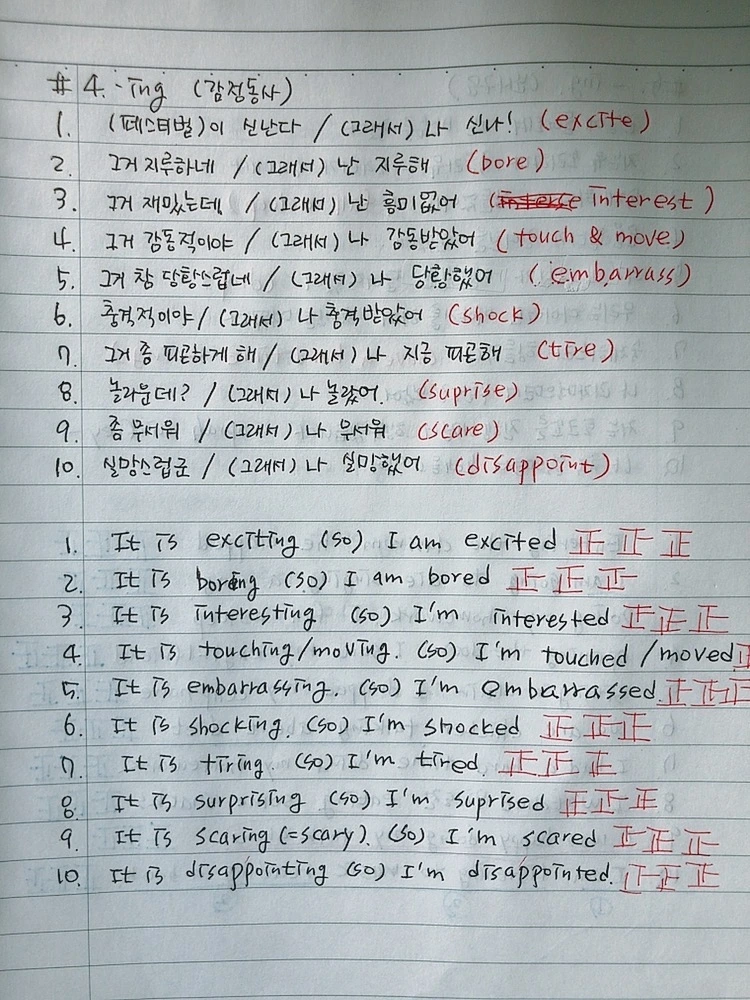 # 4. -ing (감정동사)
1. (페스티벌)이 신난다 / (그래서) 나 신나! (excite)
2. 그거 지루하네 / (그래서) 난 지루해 (bore)
3. 그거 재밌는데. / (그래서) 난 흥미없어 (interest)
4. 그거 감동적이야 / (그래서) 나 감동받았어 (touch & move)
5. 그거 참 당황스럽네 / (그래서) 나 당황했어 (embarrass)
6. 충격적이야 / (그래서) 나 충격받았어 (shock)
7. 그거 좀 피곤하게 해 / (그래서) 나 지금 피곤해 (tire)
8. 놀라운데? / (그래서) 나 놀랐어. (suprise)
9. 좀 무서워 / (그래서) 나 무서워 (scare)
10. 실망스럽군 / (그래서) 나 실망했어 (disappoint)
1. It is exciting (so) I am excited 正 正 正
2. It is boring (so) I am bored 正 正 正
3. It is interesting (so) I'm interested 正 正 正
4. It is touching/moving. (so) I'm touched /moved 正
5. It is embarrassing. (so) I'm embarrassed 正 正 正
6. It is shocking. (so) I'm shocked 正 正 正
7. It is tiring. (so) I'm tired. 正 正 正
8. It is surprising (so) I'm suprised 正 正 正
9. It is scaring (=scary). (so) I'm scared 正 正 正
10. It is disappointing (so) I'm disappointed. 正 正 正